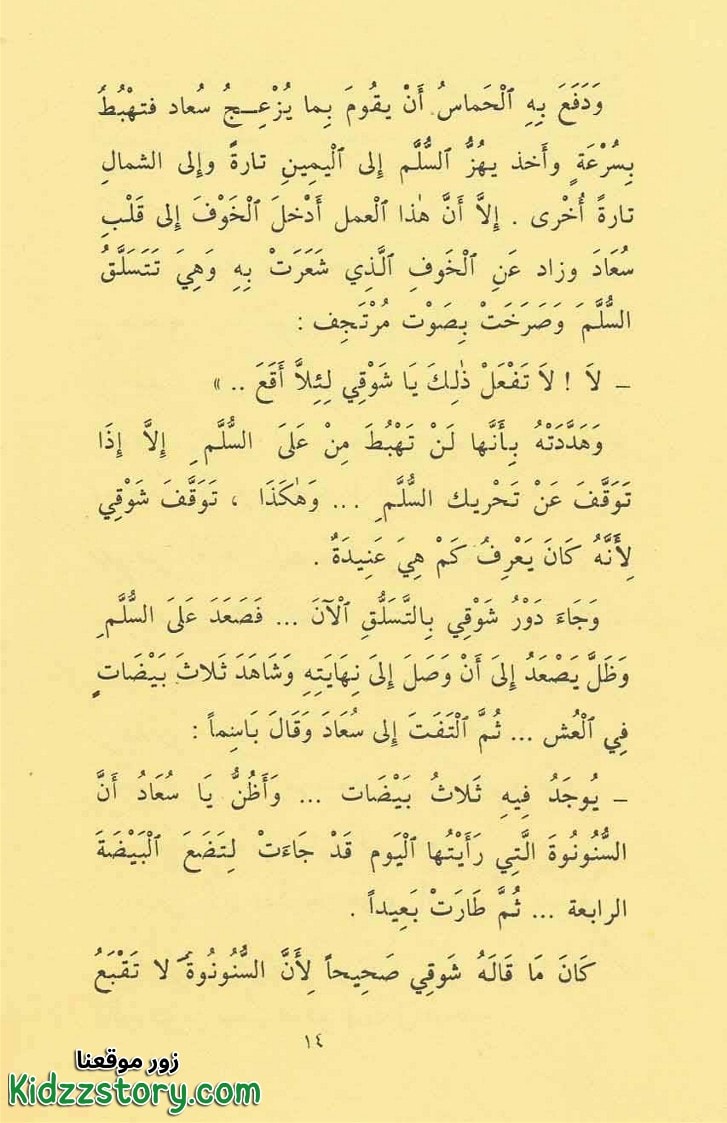 وَدَفَعَ بِهِ ٱلْحَماسُ أَنْ يقُومَ بِما يُزْعِـجُ سُعاد فتهْبُطُ
بِسُرْعَةٍ وأَخذ يهُزُّ ٱلسُّلَّم إلى ٱلْيمِينِ تارةً وإلى الشمالِ
تارةً أُخْرى . إلاَّ أنَّ هٰذا ٱلْعمل أَدْخلَ ٱلْخَوْفَ إلى قَلْبِ
سُعَادَ وزاد عَنِ ٱلْخَوفِ ٱلَّذِي شَعَرَتْ بِهِ وَهِيَ تَتَسَلَّقُ
السُّلَّمَ وَصَرَخَتْ بِصَوْت مُرْتَجِف :
– لاَ ! لاَ تَفْعَلْ ذٰلِكَ يَا شَوْقِي لِئِلاَّ أَقَعَ .. »
وَهَدَّدَتْهُ بِأَنَّها لَنْ تَهْبُطَ مِنْ عَلىَ السُّلَّمِ إِلاَّ إِذَا
تَوَقَّفَ عَنْ تَحْرِيك السُّلَّمِ ... وَهٰكَذَا ، تَوَقَّفَ شَوْقِي
لِأَنَّهُ كَانَ يَعْرِفُ كَمْ هِيَ عَنِيدَةٌ .
وَجَاءَ دَوْرُ شَوْقِي بِالتَّسَلُّقِ ٱلْآنَ ... فَصَعَدَ عَلىَ السُّلَّمِ
وَظَلَّ يَصْعَدُ إِلىَ أَنْ وَصَلَ إِلىَ نِهَايَتِهِ وَشَاهَدَ ثَلاثَ بَيْضَاتٍ
فِي ٱلْعُش ... ثُمَّ ٱلْتَفَتَ إلى سُعَادَ وَقَالَ بَاسِماً :
– يُوجَدُ فِيهِ ثَلاثُ بَيْضَات ... وَأَظُنُّ يَا سُعَادُ أَنَّ
السُّنُونُوةَ الَّتِي رَأَيْتُها ٱلْيَوم قَدْ جَاءَتْ لِتَضَعَ ٱلْبَيْضَةَ
الرابعة ... ثُمَّ طَارَتْ بَعِيداً .
كَانَ مَا قَالَهُ شَوقِي صَحِيحاً لِأَنَّ السُّنُونُوةَ لا تَقْبَعُ
١٤
زور موقعنا
Kidzzstory.com